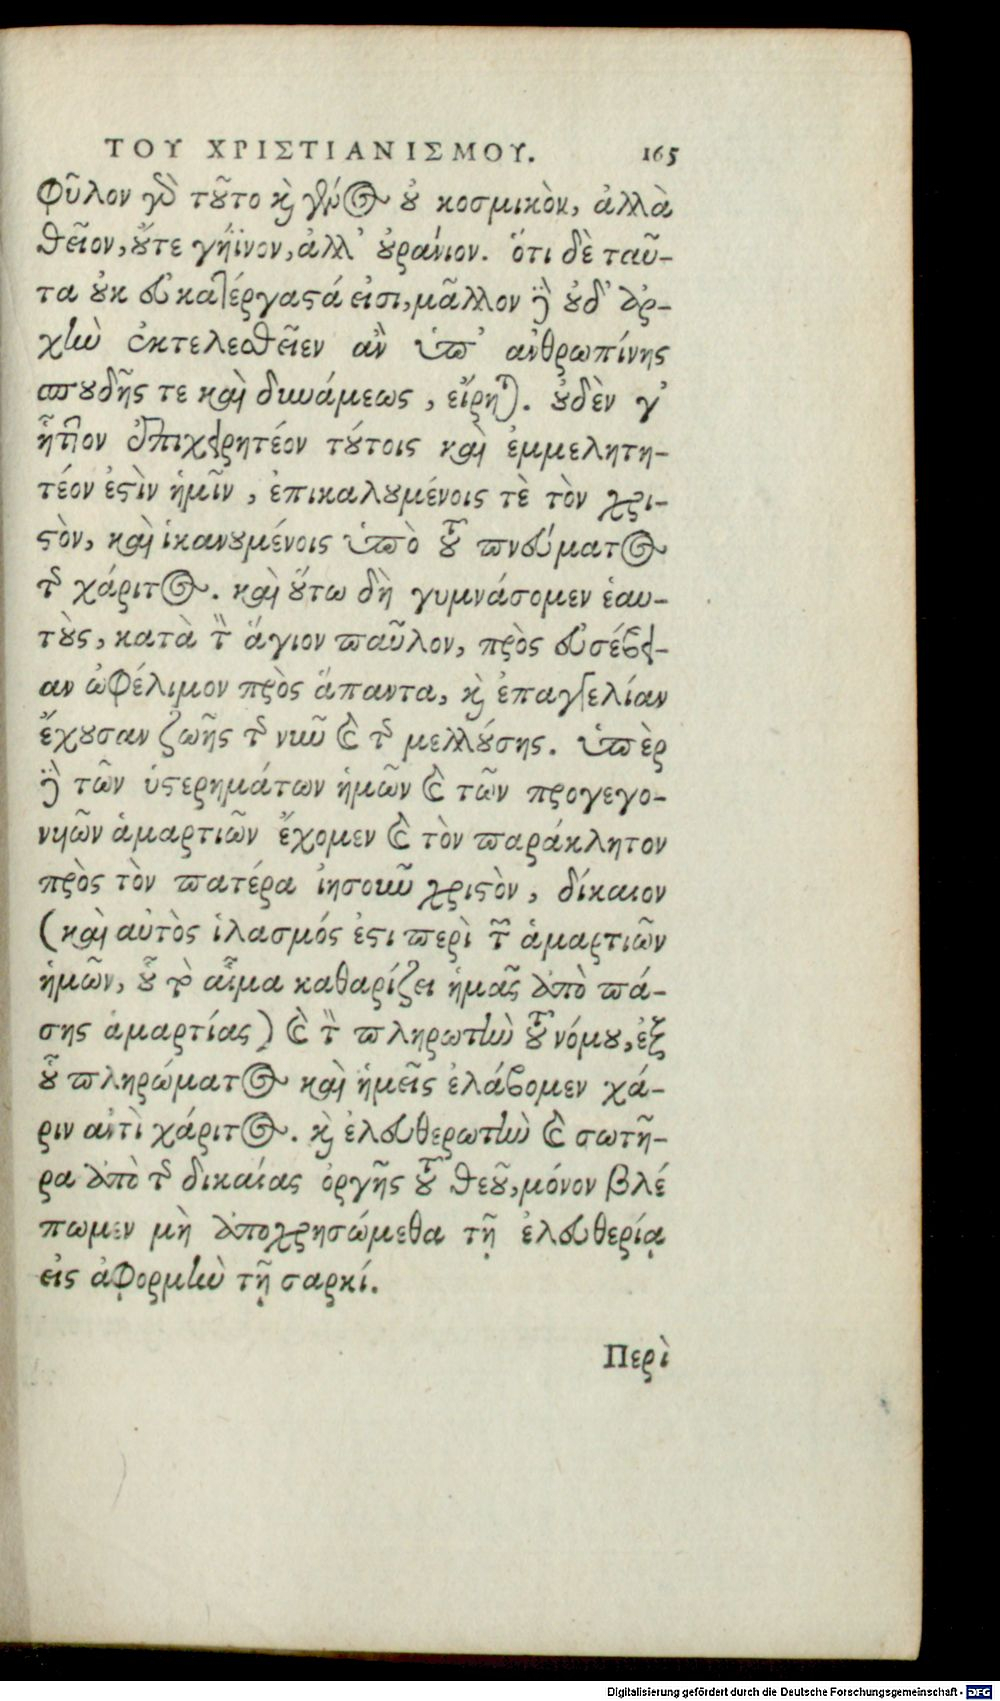 ΤΟΥ ΧΡΙΣΤΙΑΝΙΣΜΟΥ. 165
φῦλον γὰρ τοῦτο καὶ γένος οὐ κοσμικὸν, ἀλλὰ
θεῖον, οὔτε γήϊνον, ἀλλ' οὐράνιον. ὅτι δὲ ταῦ-
τα οὐκ εὐκατέργαστά εἰσι, μᾶλλον δὲ οὐδ' ἀρ-
χὴν ἐκτελεσθεῖεν ἂν ὑπ' ἀνθρωπίνης
σπουδῆς τε καὶ δυνάμεως, εἴρηται. οὐδὲν γ'
ἧττον ἐπιχειρητέον τούτοις καὶ ἐμμελητη-
τέον ἐστὶν ἡμῖν, ἐπικαλουμένοις τὲ τὸν χρι-
στὸν, καὶ ἱκανουμένοις ὑπὸ τοῦ πνεύματος
τῆς χάριτος. καὶ οὕτω δὴ γυμνάσομεν ἑαυ-
τοὺς, κατὰ τὸν ἅγιον παῦλον, πρὸς εὐσέβει-
αν ὠφέλιμον πρὸς ἅπαντα, καὶ ἐπαγγελίαν
ἔχουσαν ζωῆς τῆς νῦν καὶ τῆς μελλούσης. ὑπὲρ
δὲ τῶν ὑστερημάτων ἡμῶν καὶ τῶν προγεγο-
νυιῶν ἁμαρτιῶν ἔχομεν καὶ τὸν παράκλητον
πρὸς τὸν πατέρα ἰησοῦν χριστὸν, δίκαιον
(καὶ αὐτὸς ἱλασμός ἐστι περὶ τῶν ἁμαρτιῶν
ἡμῶν, οὗ τὸ αἷμα καθαρίζει ἡμᾶς ἀπὸ πά-
σης ἁμαρτίας) καὶ τὸν πληρωτὴν τοῦ νόμου, ἐξ
οὗ πληρώματος καὶ ἡμεῖς ἐλάβομεν χά-
ριν ἀντὶ χάριτος. καὶ ἐλευθερωτὴν καὶ σωτῆ-
ρα ἀπὸ τῆς δικαίας ὀργῆς τοῦ θεοῦ, μόνον βλέ
πωμεν μὴ ἀποχρησώμεθα τῇ ἐλευθερίᾳ
εἰς ἀφορμὴν τῇ σαρκί.
Περὶ
Digitalisierung gefördert durch die Deutsche Forschungsgemeinschaft - DFG